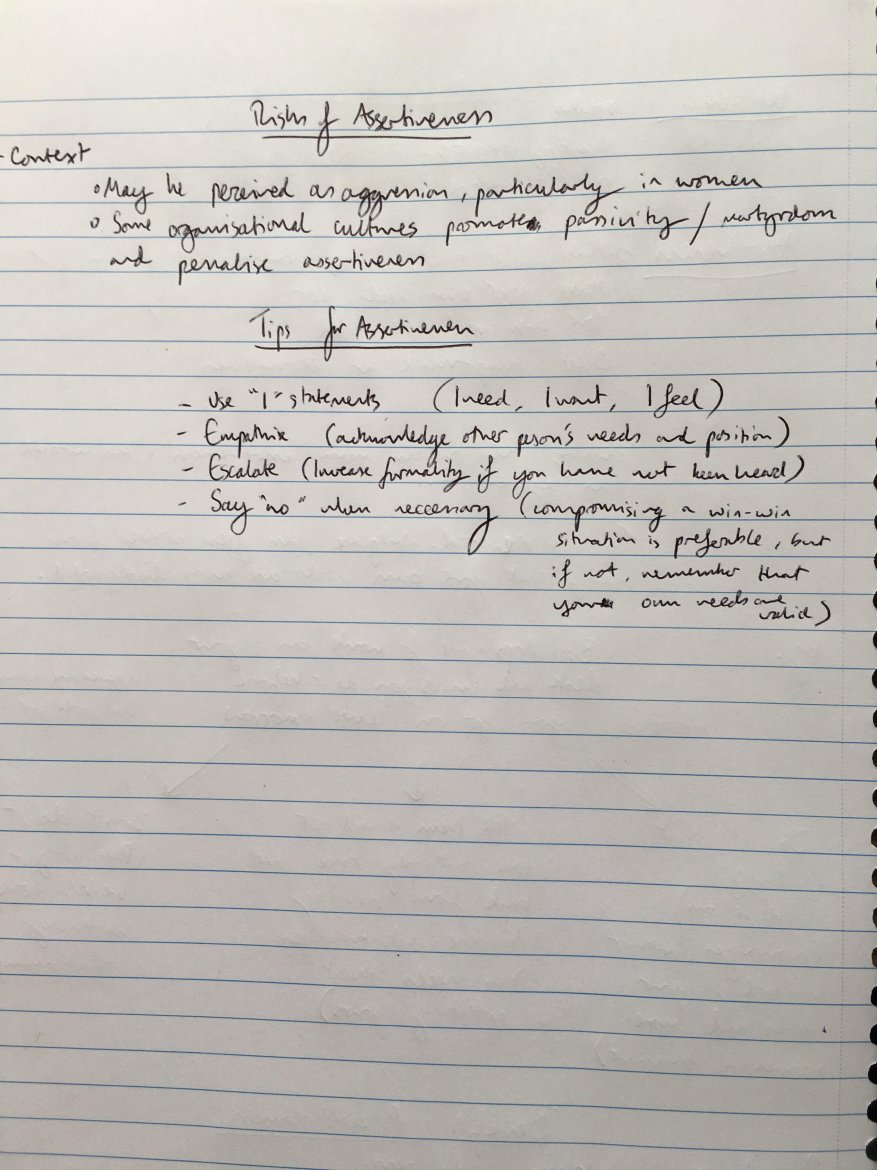 Risks of Assertiveness
- Context
◦ May be perceived as aggression, particularly in women
◦ Some organisational cultures promote passivity / martyrdom
and penalise assertiveness
Tips for Assertiveness
- Use "I" statements (I need, I want, I feel)
- Empathise (acknowledge other person's needs and position)
- Escalate (Increase formality if you have not been heard)
- Say "no" when neccessary (compromising a win-win
situation is preferable, but
if not, remember that
your own needs are
valid)